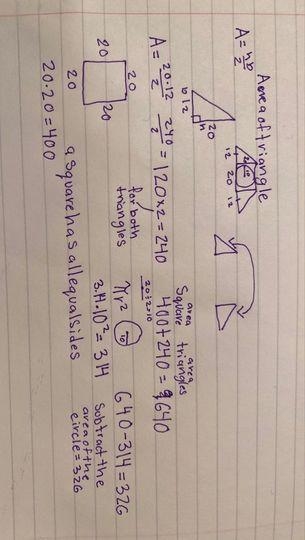 Area of triangle
A = hb/2
b 12
20
h
12 20 12
A = 20·12/2 240/2 = 120 x 2 = 240
for both
triangles
20
20 20
20
20·20 = 400
a square has all equal sides
area area
Square triangles
400 + 240 = 640
20÷2=10
πr² 10
3.14·10² = 314
640 - 314 = 326
Subtract the
area of the
circle = 326